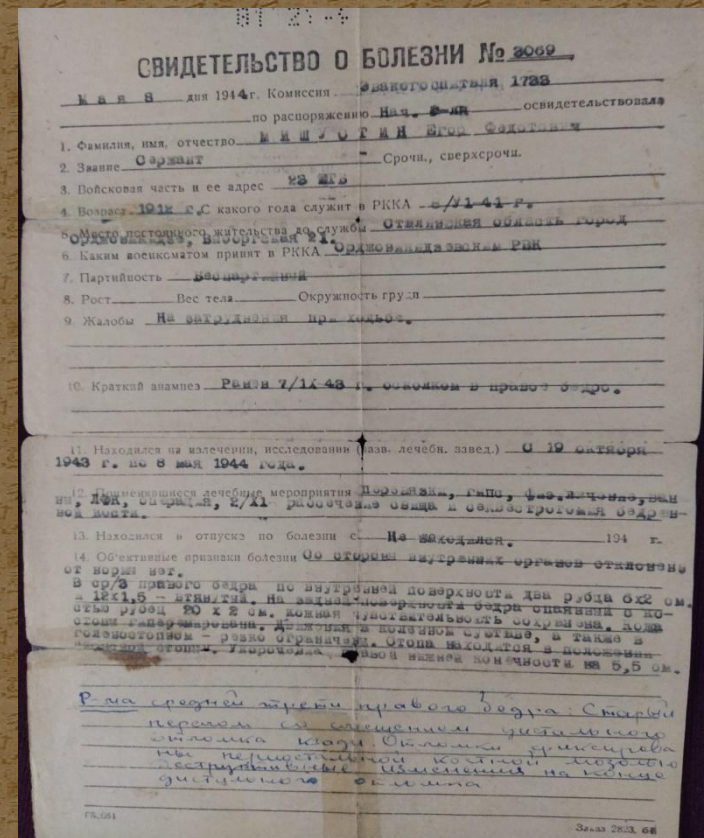 СВИДЕТЕЛЬСТВО О БОЛЕЗНИ № 3069
Мая 8 дня 1944г. Комиссия Эвакогоспиталя 1733
по распоряжению Нач. освидетельствовала
1. Фамилия, имя, отчество МИШУСТИН Егор Федотович
2. Звание Сержант Срочн., сверхсрочн.
3. Войсковая часть и ее адрес 23
4. Возраст 1912 г. С какого года служит в РККА 41 г.
5. Место постоянного жительства до службы Сталинская область город
Орджоникидзе, Выборгская 21.
6. Каким военкоматом принят в РККА Орджоникидзевским РВК
7. Партийность Беспартийный
8. Рост Вес тела Окружность груди
9. Жалобы На затруднения при ходьбе.
10. Краткий анамнез Ранен 7/IX 43 г. осколком в правое бедро.
11. Находился на излечении, исследовании (назв. лечебн. завед.) С 19 октября
1943 г. по 8 мая 1944 года.
12. Применявшиеся лечебные мероприятия Перевязка, гипс, физ.лечение, ван
ны, ЛФК, операция, 2/XI рассечение свища и секвестротомия бедрен-
ной кости.
13. Находился в отпуску по болезни с Не находился. 194 г.
14. Об'ективные признаки болезни Со стороны внутренних органов отклонено
от норми нет.
В ср/3 правого бедра по внутренней поверхности два рубца 6х2 см.
12х1,5 – втянутый. На задней поверхности бедра спаянный с ко-
стью рубец 20 х 2 см. Кожная чувствительность сохранена. Кожа
стопы Движения в коленном суставе, а также в
голеностопном – резко ограничен. Стопа находится в положении
стопы. Укорочение правой нижней конечности на 5,5 см.
Р-ма средней трети правого бедра: Старый
перелом со смещением дистального
отломка кзади Отломки фиксирова
ны периостальной костной мозолью
Деструктивные изменения на конце
дистального отломка
Заказ 2823.